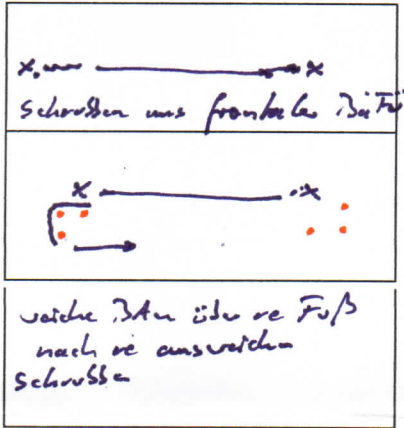 Schrubben aus frontaler BaFü
weiche BAn über re Fuß
nach re ausweichen
Schrubben